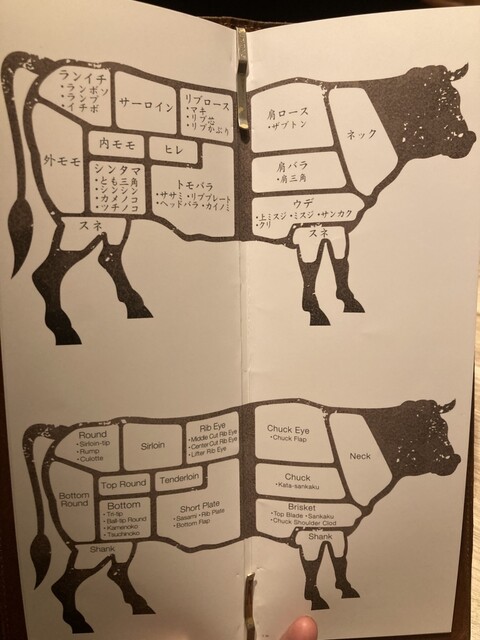 ランイチ
・ランボソ
・ランプ
・イチボ
サーロイン
リブロース
・マキ
・リブ芯
・リブかぶり
肩ロース
・ザブトン
ネック
外モモ
内モモ
ヒレ
シンタマ
・とも三角
・シンシン
・カメノコ
・ツチノコ
トモバラ
・ササミ・リブプレート
・ヘッドバラ・カイノミ
肩バラ
・肩三角
ウデ
・上ミスジ・ミスジ・サンカク
・クリ
スネ
スネ
Round
・Sirloin-tip
・Rump
・Culotte
Sirloin
Rib Eye
・Middle Cut Rib Eye
・Center Cut Rib Eye
・Lifter Rib Eye
Chuck Eye
・Chuck Flap
Neck
Bottom
Round
Top Round
Tenderloin
Bottom
・Tri-tip
・Ball-tip Round
・Kamenoko
・Tsuchinoko
Short Plate
・Sasami・Rib Plate
・Bottom Flap
Chuck
・Kata-sankaku
Brisket
・Top Blade・Sankaku
・Chuck Shoulder Clod
Shank
Shank